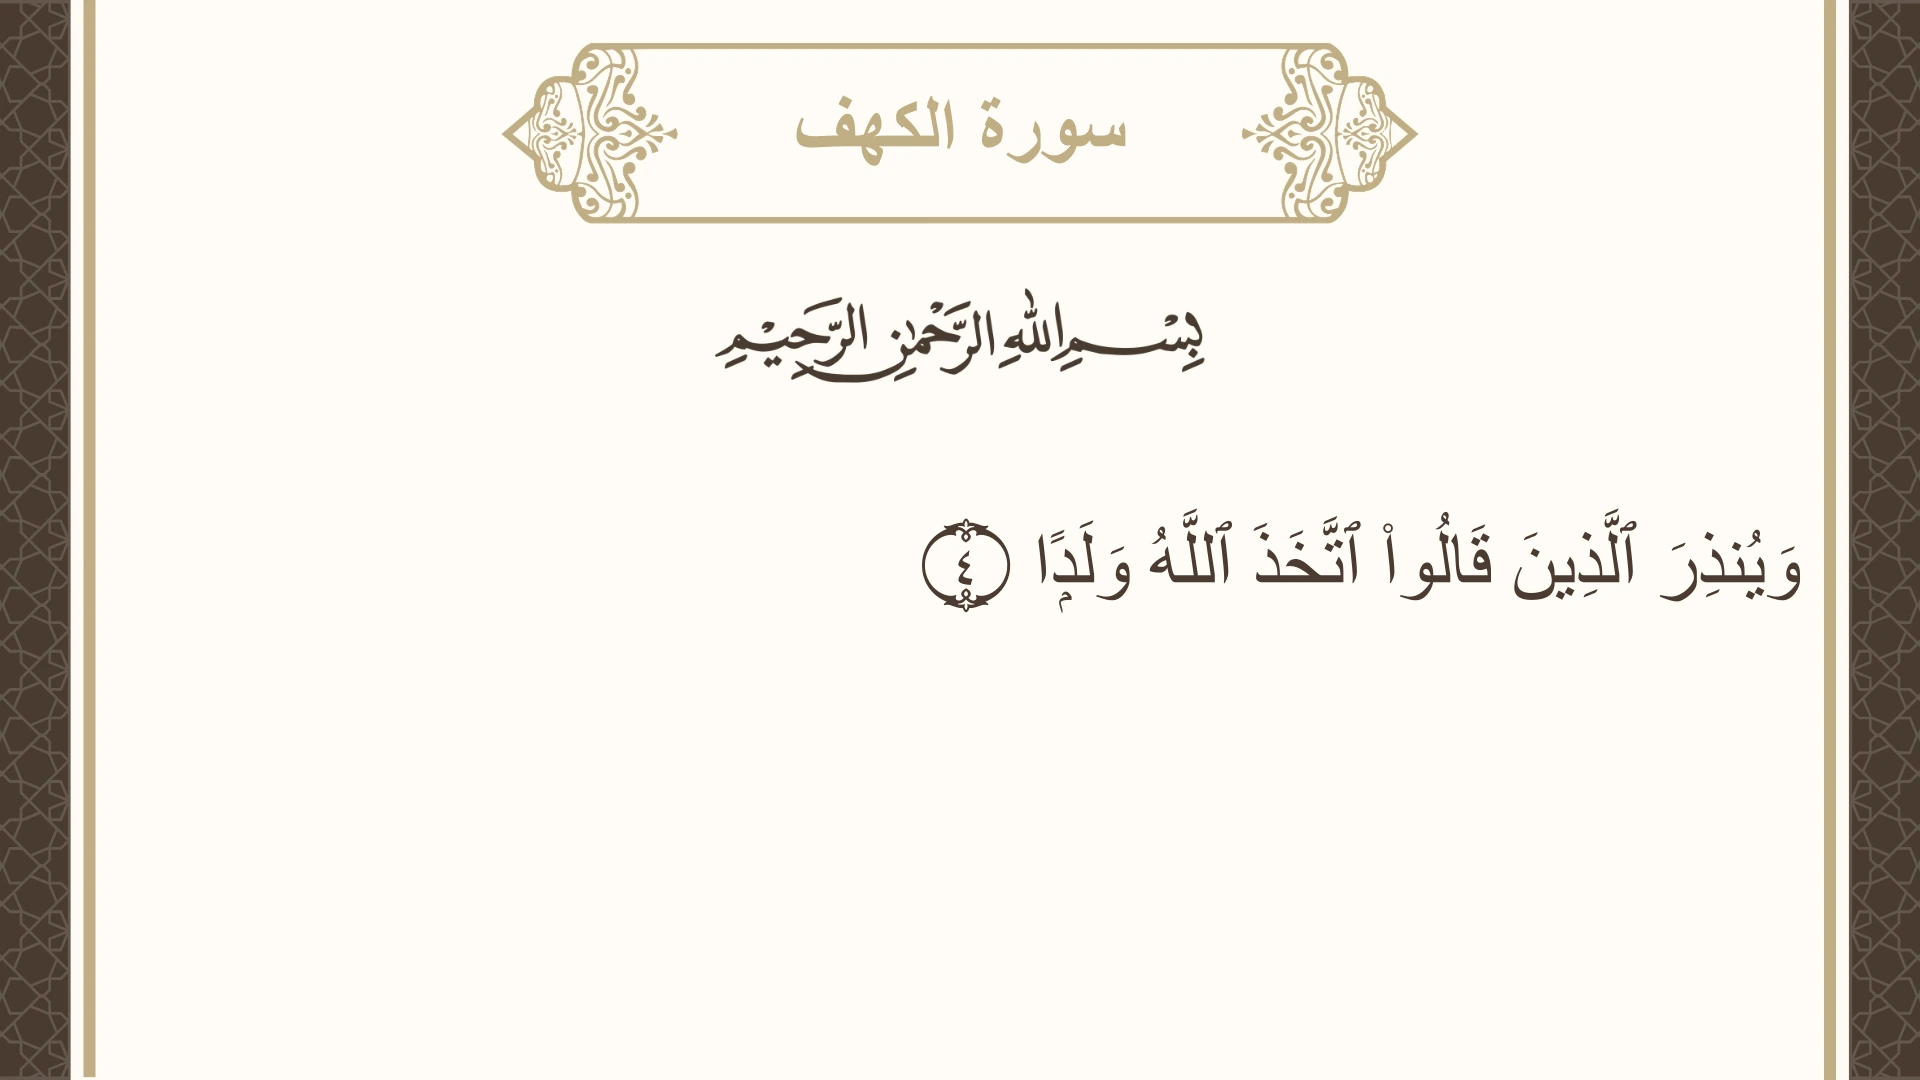 سورة الكهف
بِسْمِ اللهِ الرَّحْمٰنِ الرَّحِيْمِ
وَيُنذِرَ ٱلَّذِينَ قَالُوا۟ ٱتَّخَذَ ٱللَّهُ وَلَدًۭا ٤